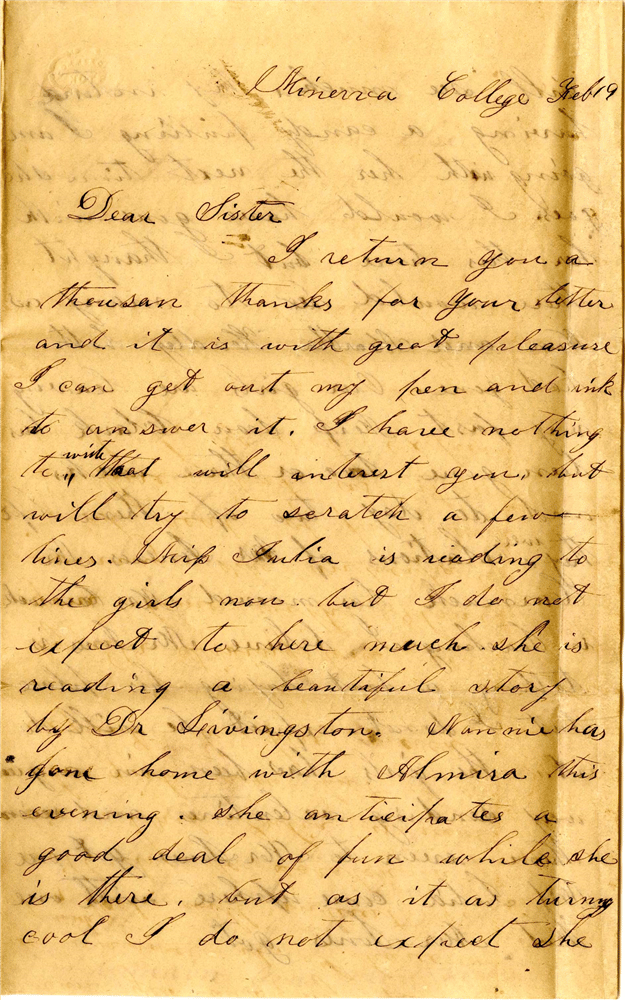 Minerva College Feb 19
Dear Sister
I return you a
thousan thanks for your letter
and it is with great pleasure
I can get out my pen and ink
to answer it. I have nothing
to write that will interest you, but
will try to scratch a few
lines. Miss Julia is reading to
the girls now but I do not
expect to here much. she is
reading a beautiful story
by Dr Livingston. Nannie has
gone home with Almira this
evening. she anticipates a
good deal of fun while she
is there, but as it as turning
cool I do not expect she